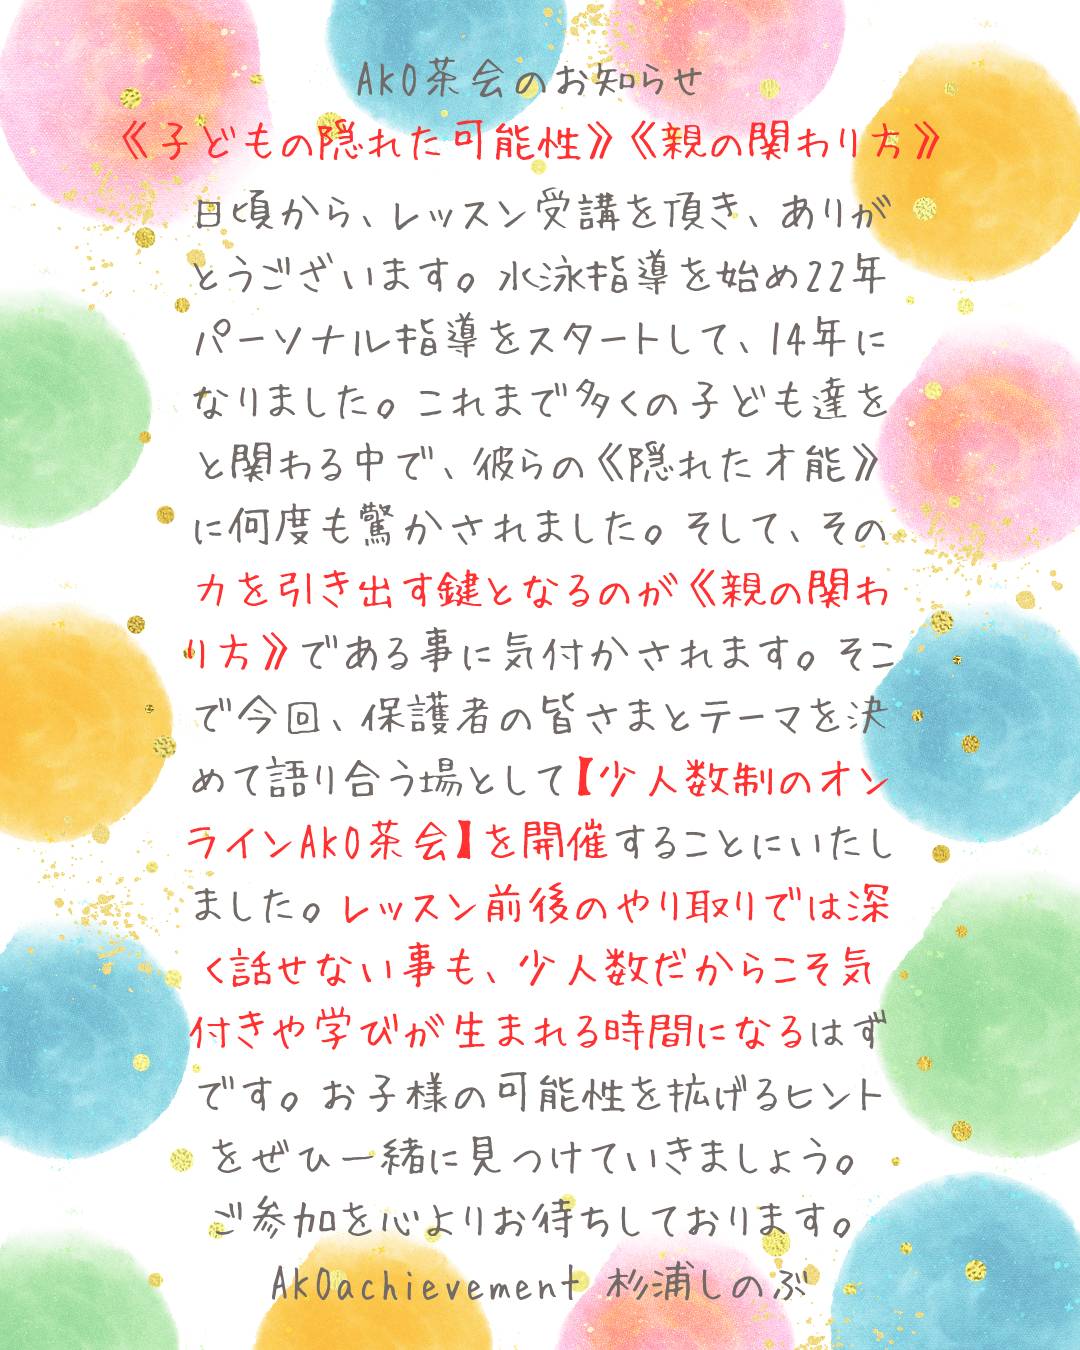 AKO茶会のお知らせ
《子どもの隠れた可能性》《親の関わり方》
日頃から、レッスン受講を頂き、ありが
とうございます。水泳指導を始め22年
パーソナル指導をスタートして、14年に
なりました。これまで多くの子ども達を
と関わる中で、彼らの《隠れた才能》
に何度も驚かされました。そして、その
力を引き出す鍵となるのが《親の関わ
り方》である事に気付かされます。そこ
で今回、保護者の皆さまとテーマを決
めて語り合う場として【少人数制のオン
ラインAKO茶会】を開催することにいたし
ました。レッスン前後のやり取りでは深
く話せない事も、少人数だからこそ気
付きや学びが生まれる時間になるはず
です。お子様の可能性を拡げるヒント
をぜひ一緒に見つけていきましょう。
ご参加を心よりお待ちしております。
AKOachievement 杉浦しのぶ